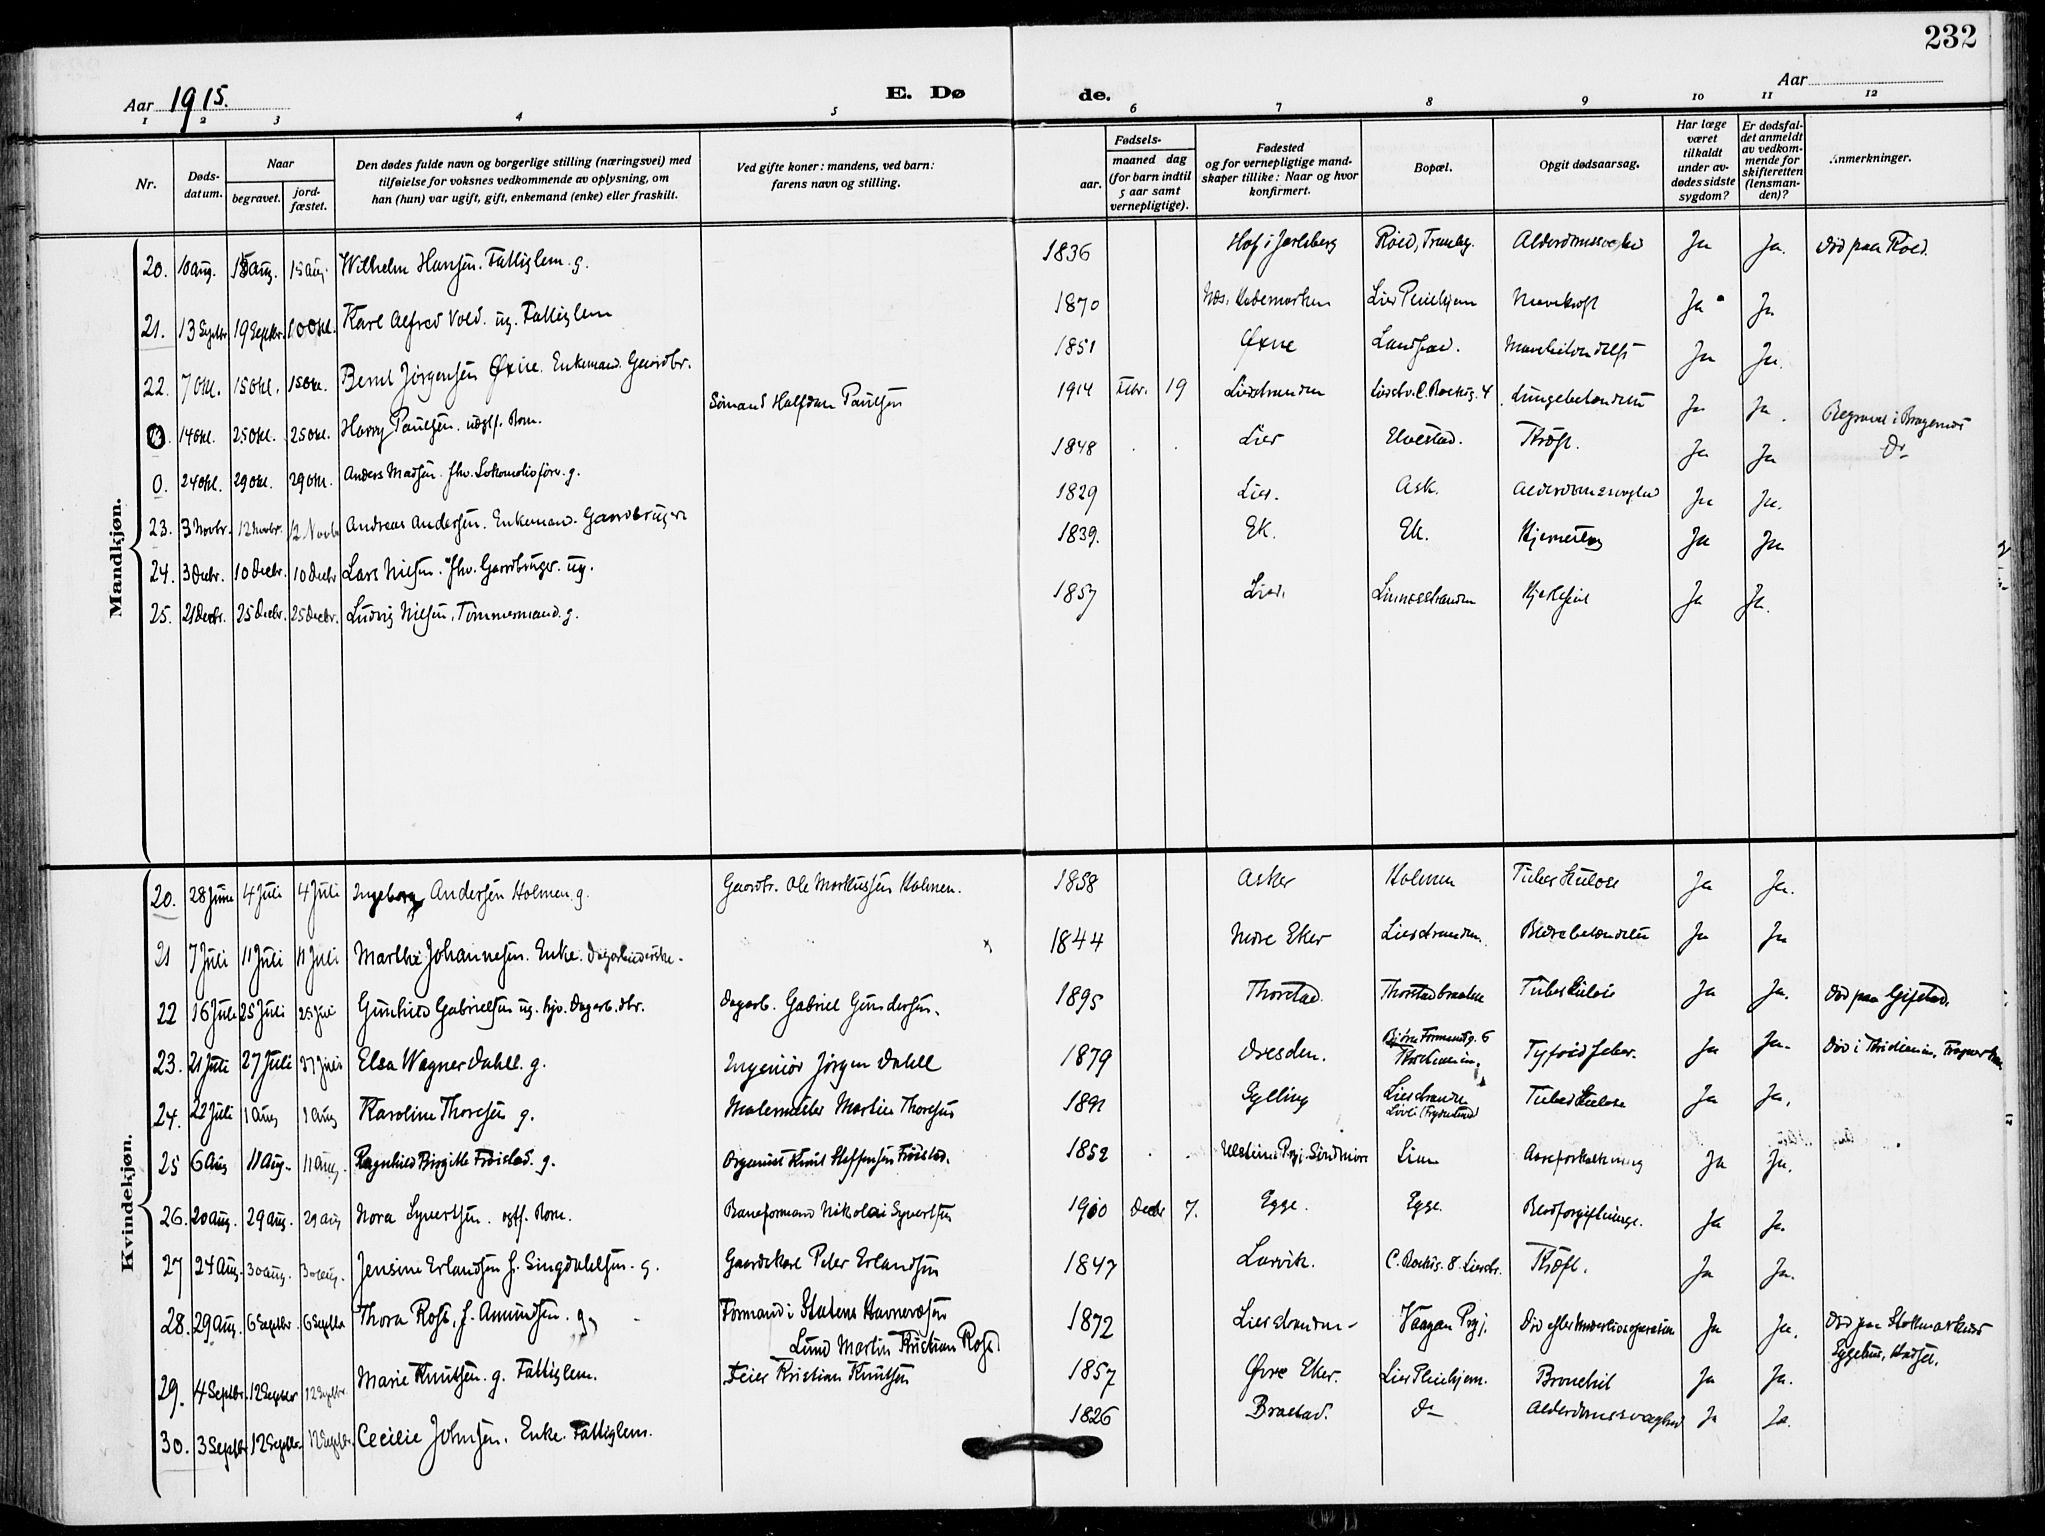 232
Aar 1915.
E. Dø de.
Aar
1 2 3 4 5 6 7 8 9 10 11 12
Nr.
Døds-
datum.
Naar
begravet.
jord-
fæstet.
Den dødes fulde navn og borgerlige stilling (næringsvei) med
tilføielse for voksnes vedkommende av oplysning, om
han (hun) var ugift, gift, enkemand (enke) eller fraskilt.
Ved gifte koner: mandens, ved barn:
farens navn og stilling.
Fødsels-
aar.
maaned dag
(for barn indtil
5 aar samt
vernepligtige).
Fødested
og for vernepligtige mand-
skaper tillike: Naar og hvor
konfirmert.
Bopæl.
Opgit dødsaarsag.
Har læge
været
tilkaldt
under av-
dødes sidste
sygdom?
Er dødsfal-
det anmeldt
av vedkom-
mende for
skifteretten
(lensman-
den)?
Anmerkninger.
Mandkjøn.
20. 10 aug. 15 aug. 15 aug. Wilhelm Hansen. Fattiglem. g. 1836 Hof i Jarlsberg Røed, Tranby. Alderdomssvaghed Ja Ja. Død paa Røed.
21. 13 Septbr 19 Septbr. 10 Okt. Karl Alfred Vold. ug. Fattiglem 1870 Næs, Hedemarken Lier Pleiehjem Mavekræft Ja Ja
22. 7 Okt. 15 Okt. 15 Okt. Bernt Jørgensen Øxne. Enkemand. Gaardbr. 1851 Øxne Landfald. Ja Ja.
14 Okt. 25 Okt. 25 Okt. Harry Paulsen. uægtf. Barn. Sømand Halfdan Paulsen 1914 Febr. 19 Lierstranden Lierstr. C. Roeksg. 4 Lungebetændelse Ja Ja. Begravet i Bragernes
0. 24 Okt. 29 Okt. 29 Okt. Anders Madsen. fhv. Lokomotivfører. g. 1848 Lier Elvestad. Kræft. Ja Ja Do
23. 3 Novbr. 12 Novbr. 12 Novbr Andreas Andersen. Enkemand. Gaardbruger 1829 Lier. Ask. Alderdomssvaghed Ja Ja.
24. 3 Decbr. 10 Decbr. 10 Decbr Lars Nilsen. fhv. Gaardbruger. ug. 1839. Ek. Ek. Ja Ja
25. 21 Decbr. 25 Decbr. 25 Decbr. Ludvig Nilsen, Tømmermand. g. 1857 Lier. Linnesstranden Hjertefeil Ja Ja.
Kvindekjøn.
20. 28 Juni 4 Juli 4 Juli Ingeborg Andersen Holmen. g. Gaardbr. Ole Markussen Holmen. 1858 Asker Holmen Tuberkulose Ja Ja.
21 7 Juli 11 Juli 11 Juli Marthe Johannesen. Enke. Dagarbeiderske. 1844 Nedre Eker Lierstranden. Blærebetændelse Ja Ja
22 16 Juli 25 Juli 25 Juli Gunhild Gabrielsen ug. hjv. Dagarb. dtr. Dagarb. Gabriel Gundersen. 1895 Thorstad. Thorstadbraaten Tuberkulose Ja Ja. Død paa Gifstad.
23. 21 Juli 27 Juli 27 Juli Elsa Wagner Dahll. g. Ingeniør Jørgen Dahll 1879 Dresden. Bjørn Farmandsg. 6 Kristiania. Tyfoidfeber. Ja Ja. Død i Kristiania,
24. 22 Juli 1 Aug 1 Aug Karoline Thoresen g. Malermester Martin Thoresen 1891 Gylling Lierstranden Tuberkulose Ja Ja.
25 6 Aug 11 Aug. 11 Aug. Ragnhild Birgitte Frøislad. g. Organist Knut Steffensen Frøislad. 1852 Ulsteins Prgj. Søndmøre Lian Aareforkalkning Ja Ja.
26. 20 Aug. 29 Aug. 29 Aug Nora Syvertsen. egtf. Barn. Baneformand Nikolai Syvertsen 1910 Decbr 7. Egge. Egge. Blodforgiftning. Ja Ja.
27 24 Aug. 30 Aug. 30 Aug. Jensine Erlandsen f. Singdahlsen. g. Gaardskarl Peter Erlandsen 1847 Larvik. C. Roeksg. 8. Lierstr. Kræft. Ja Ja.
28. 29 Aug. 6 Septbr 6 Septbr Thora Rost, f. Amundsen. g. Formand i Statens Havnevæsen 1872 Lierstranden Vaagan Prgj. Død efter Underlivsoperation Ja Ja. Død paa Stokmarknes
Lund Martin Kristian Rost. Sygehus, Hadsel.
29. 4 Septbr. 12 Septbr 12 Septbr. Marie Knutsen. g. Fattiglem. Feier Kristian Knutsen 1857 Øvre Eker. Lier Pleiehjem. Bronchit Ja Ja.
30. 3 Septbr 12 Septbr. 12 Septbr. Cecilie Johnsen. Enke. Fattiglem. 1826 Brastad. Do Alderdomssvaghed Ja Ja.